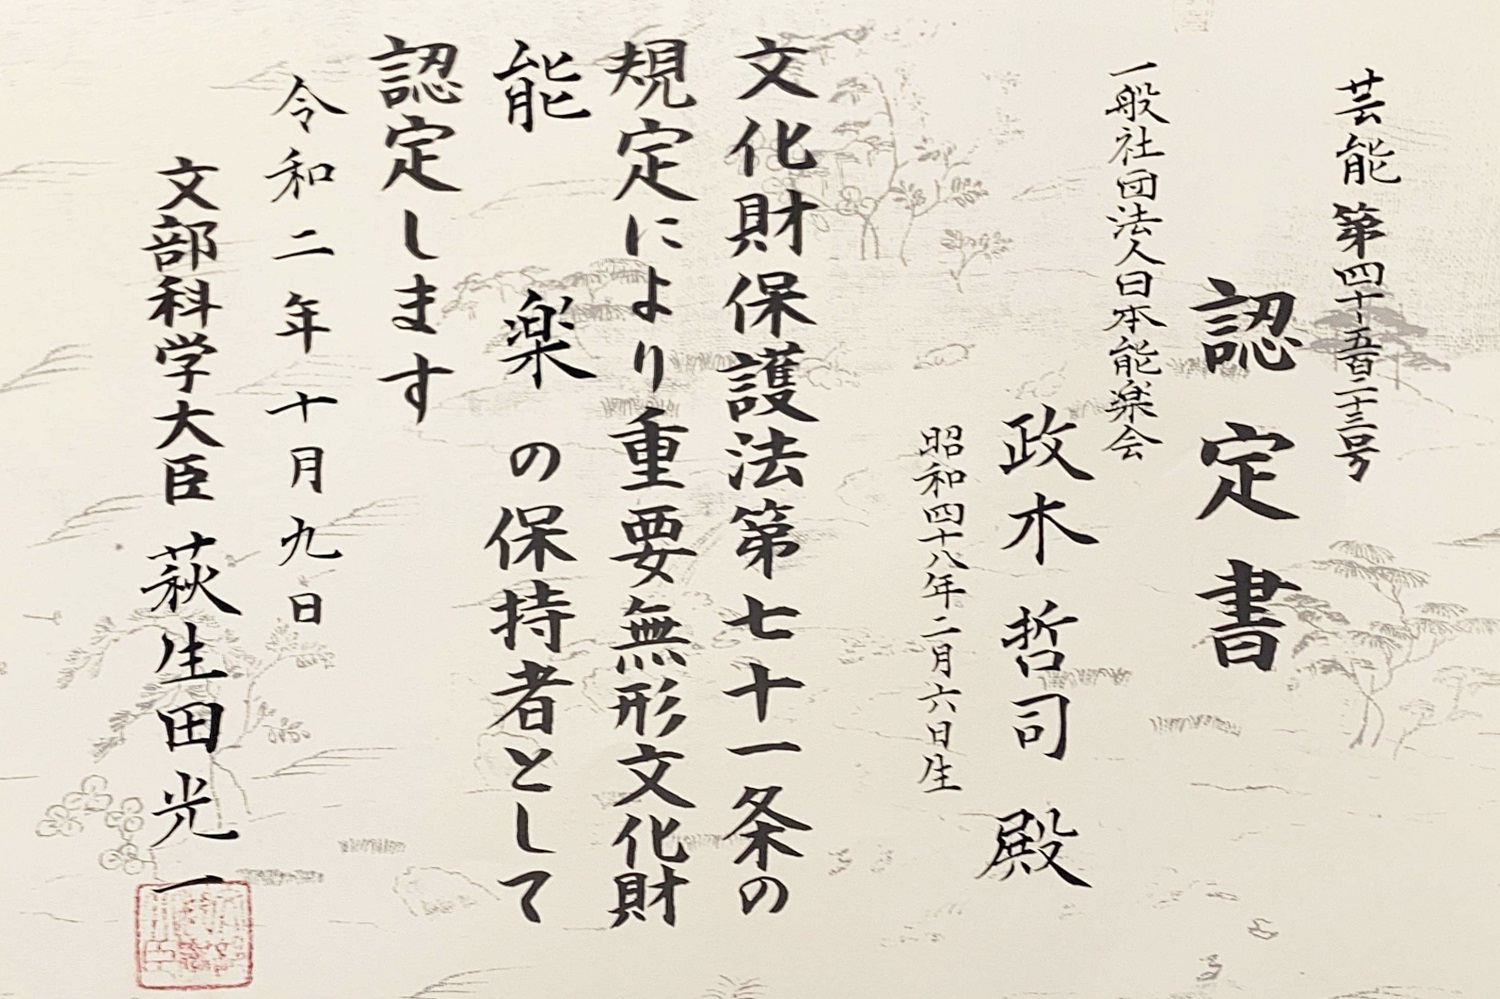 芸能第四十五百二十三号
認定書
一般社団法人日本能楽会
政木哲司殿
昭和四十八年二月六日生
文化財保護法第七十一条の
規定により重要無形文化財
能楽の保持者として
認定します
令和二年十月九日
文部科学大臣萩生田光一